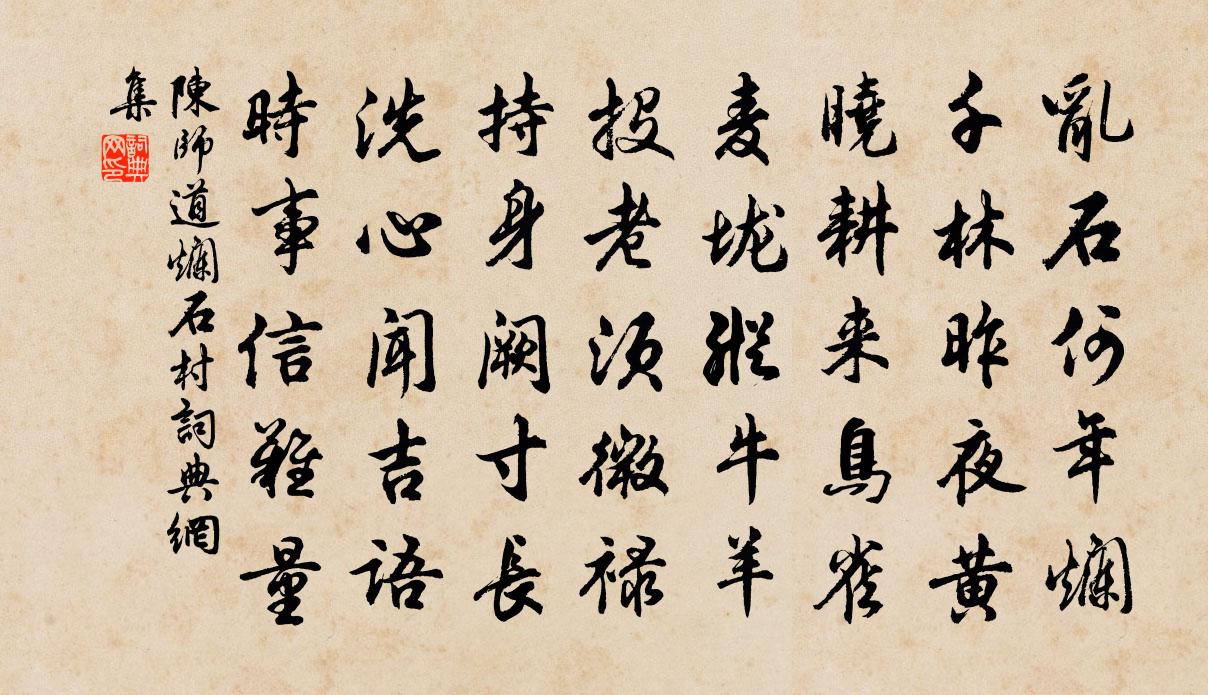 亂石何年爛
千林昨夜黃
曉耕来鳥雀
麦垅縱牛羊
投老須微禄
持身闕寸長
洗心聞吉語
時事信難量
陳師道爛石村詞典網
集
詞典网印